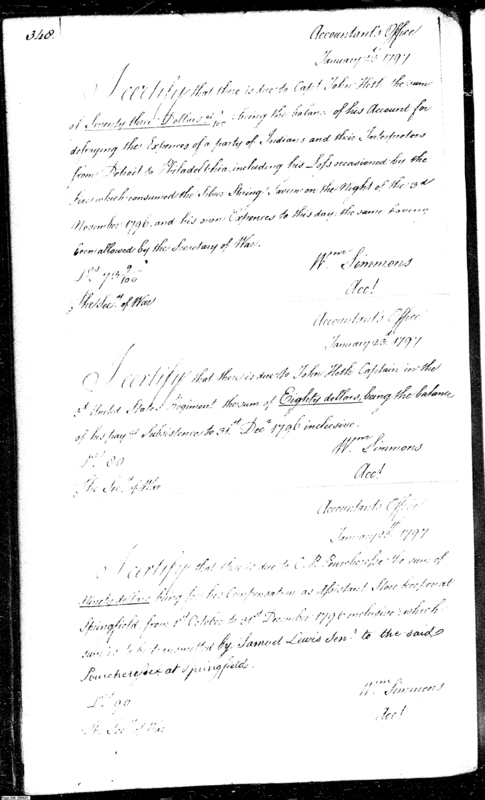 348.
Accountant's Office
January 23d 1797
I certify that there is due to Capt John Heth the sum
of Seventy three Dollars 9/100 being the balance of his Account for
defraying the Expences of a party of Indians and their Interpreters
from Detroit to Philadelphia, including his Loss occasioned by the
Fire which consumed the Tavern on the Night of the 3d
November 1796. and his own Expences to this day, the same having
been allowed by the Secretary of War.
73 9/100
The Secy of War
Wm Simmons
Acct
Accountant's Office
January 23d 1797
I certify that there is due to John Heth Captain in the
3d United States Regiment the sum of Eighty dollars, being the balance
of his pay & Subsistence to 31st Decr 1796 inclusive.
80
The Secy of War
Wm Simmons
Acct
Accountant's Office
January 1797
I certify that there is due to C. R. the sum of
Ninety dollars being for his Compensation as Assistant Store keeper at
Springfield from 1st October to 31st December 1796 inclusive; which
sum is to be transmitted by Samuel Lewis Senr to the said
at Springfield.
90
The Secy of War
Wm Simmons
Acct